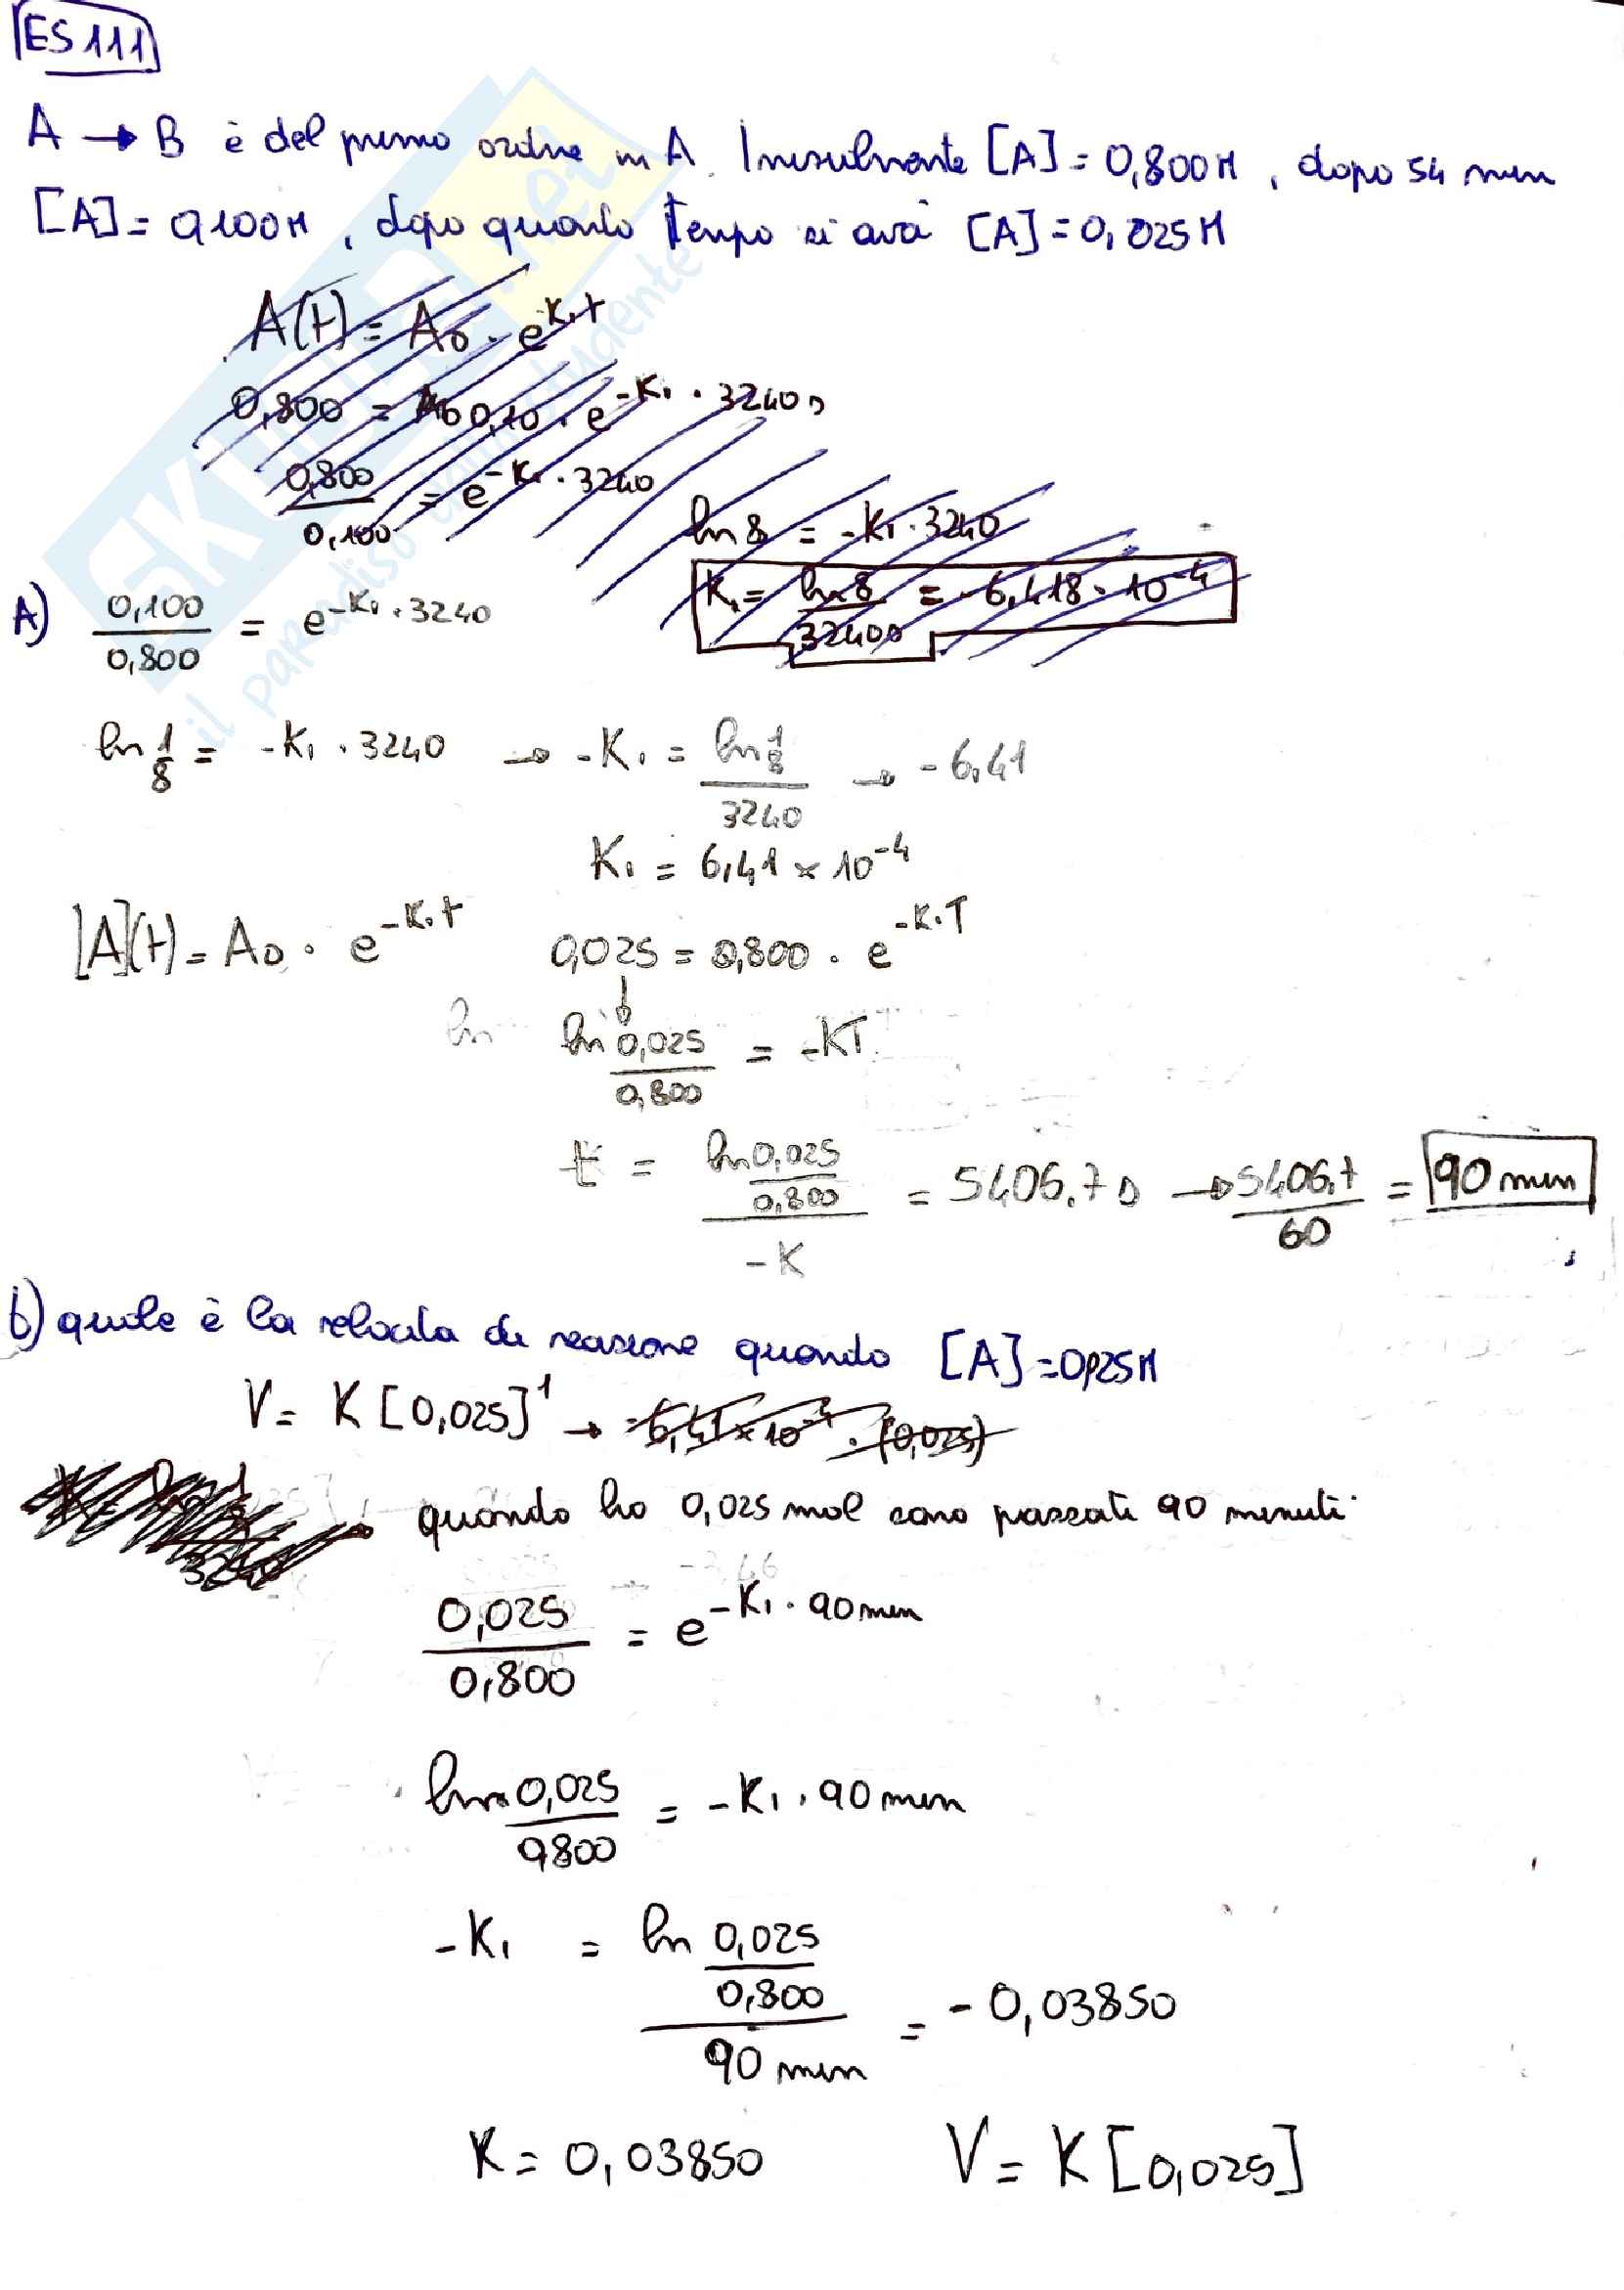 ES 111
A → B è del primo ordine in A. Inizialmente [A] = 0,800 M, dopo 54 min
[A] = 0,100 M, dopo quanto tempo si avrà [A] = 0,025 M
A(t) = A₀ · e^K₁t
0,800 = A₀ 0,10 · e^-K₁ · 3240 s
0,800/0,100 = e^-K₁ · 3240
ln 8 = -K₁ · 3240
K₁ = ln 8/32400 = -6,418 · 10^-4
A) 0,100/0,800 = e^-K₁ · 3240
ln 1/8 = -K₁ · 3240 → -K₁ = ln 1/8 / 3240 → -6,41
K₁ = 6,41 × 10^-4
[A](t) = A₀ · e^-K₁t 0,025 = 0,800 · e^-K·T
ln ln 0,025/0,800 = -KT
t = ln 0,025/0,800 / -K = 5406.7 s → 5406,7/60 = 90 min
b) quale è la velocità di reazione quando [A] = 0,025 M
V = K [0,025]¹ → -6,41 × 10^-4 · (0,025)
quando ho 0,025 mol sono passati 90 minuti
0,025/0,800 = e^-K₁ · 90 min
ln 0,025/0,800 = -K₁ · 90 min
-K₁ = ln 0,025/0,800 / 90 min = -0,03850
K = 0,03850 V = K [0,025]
SKUOLA.net
il paradiso dello studente